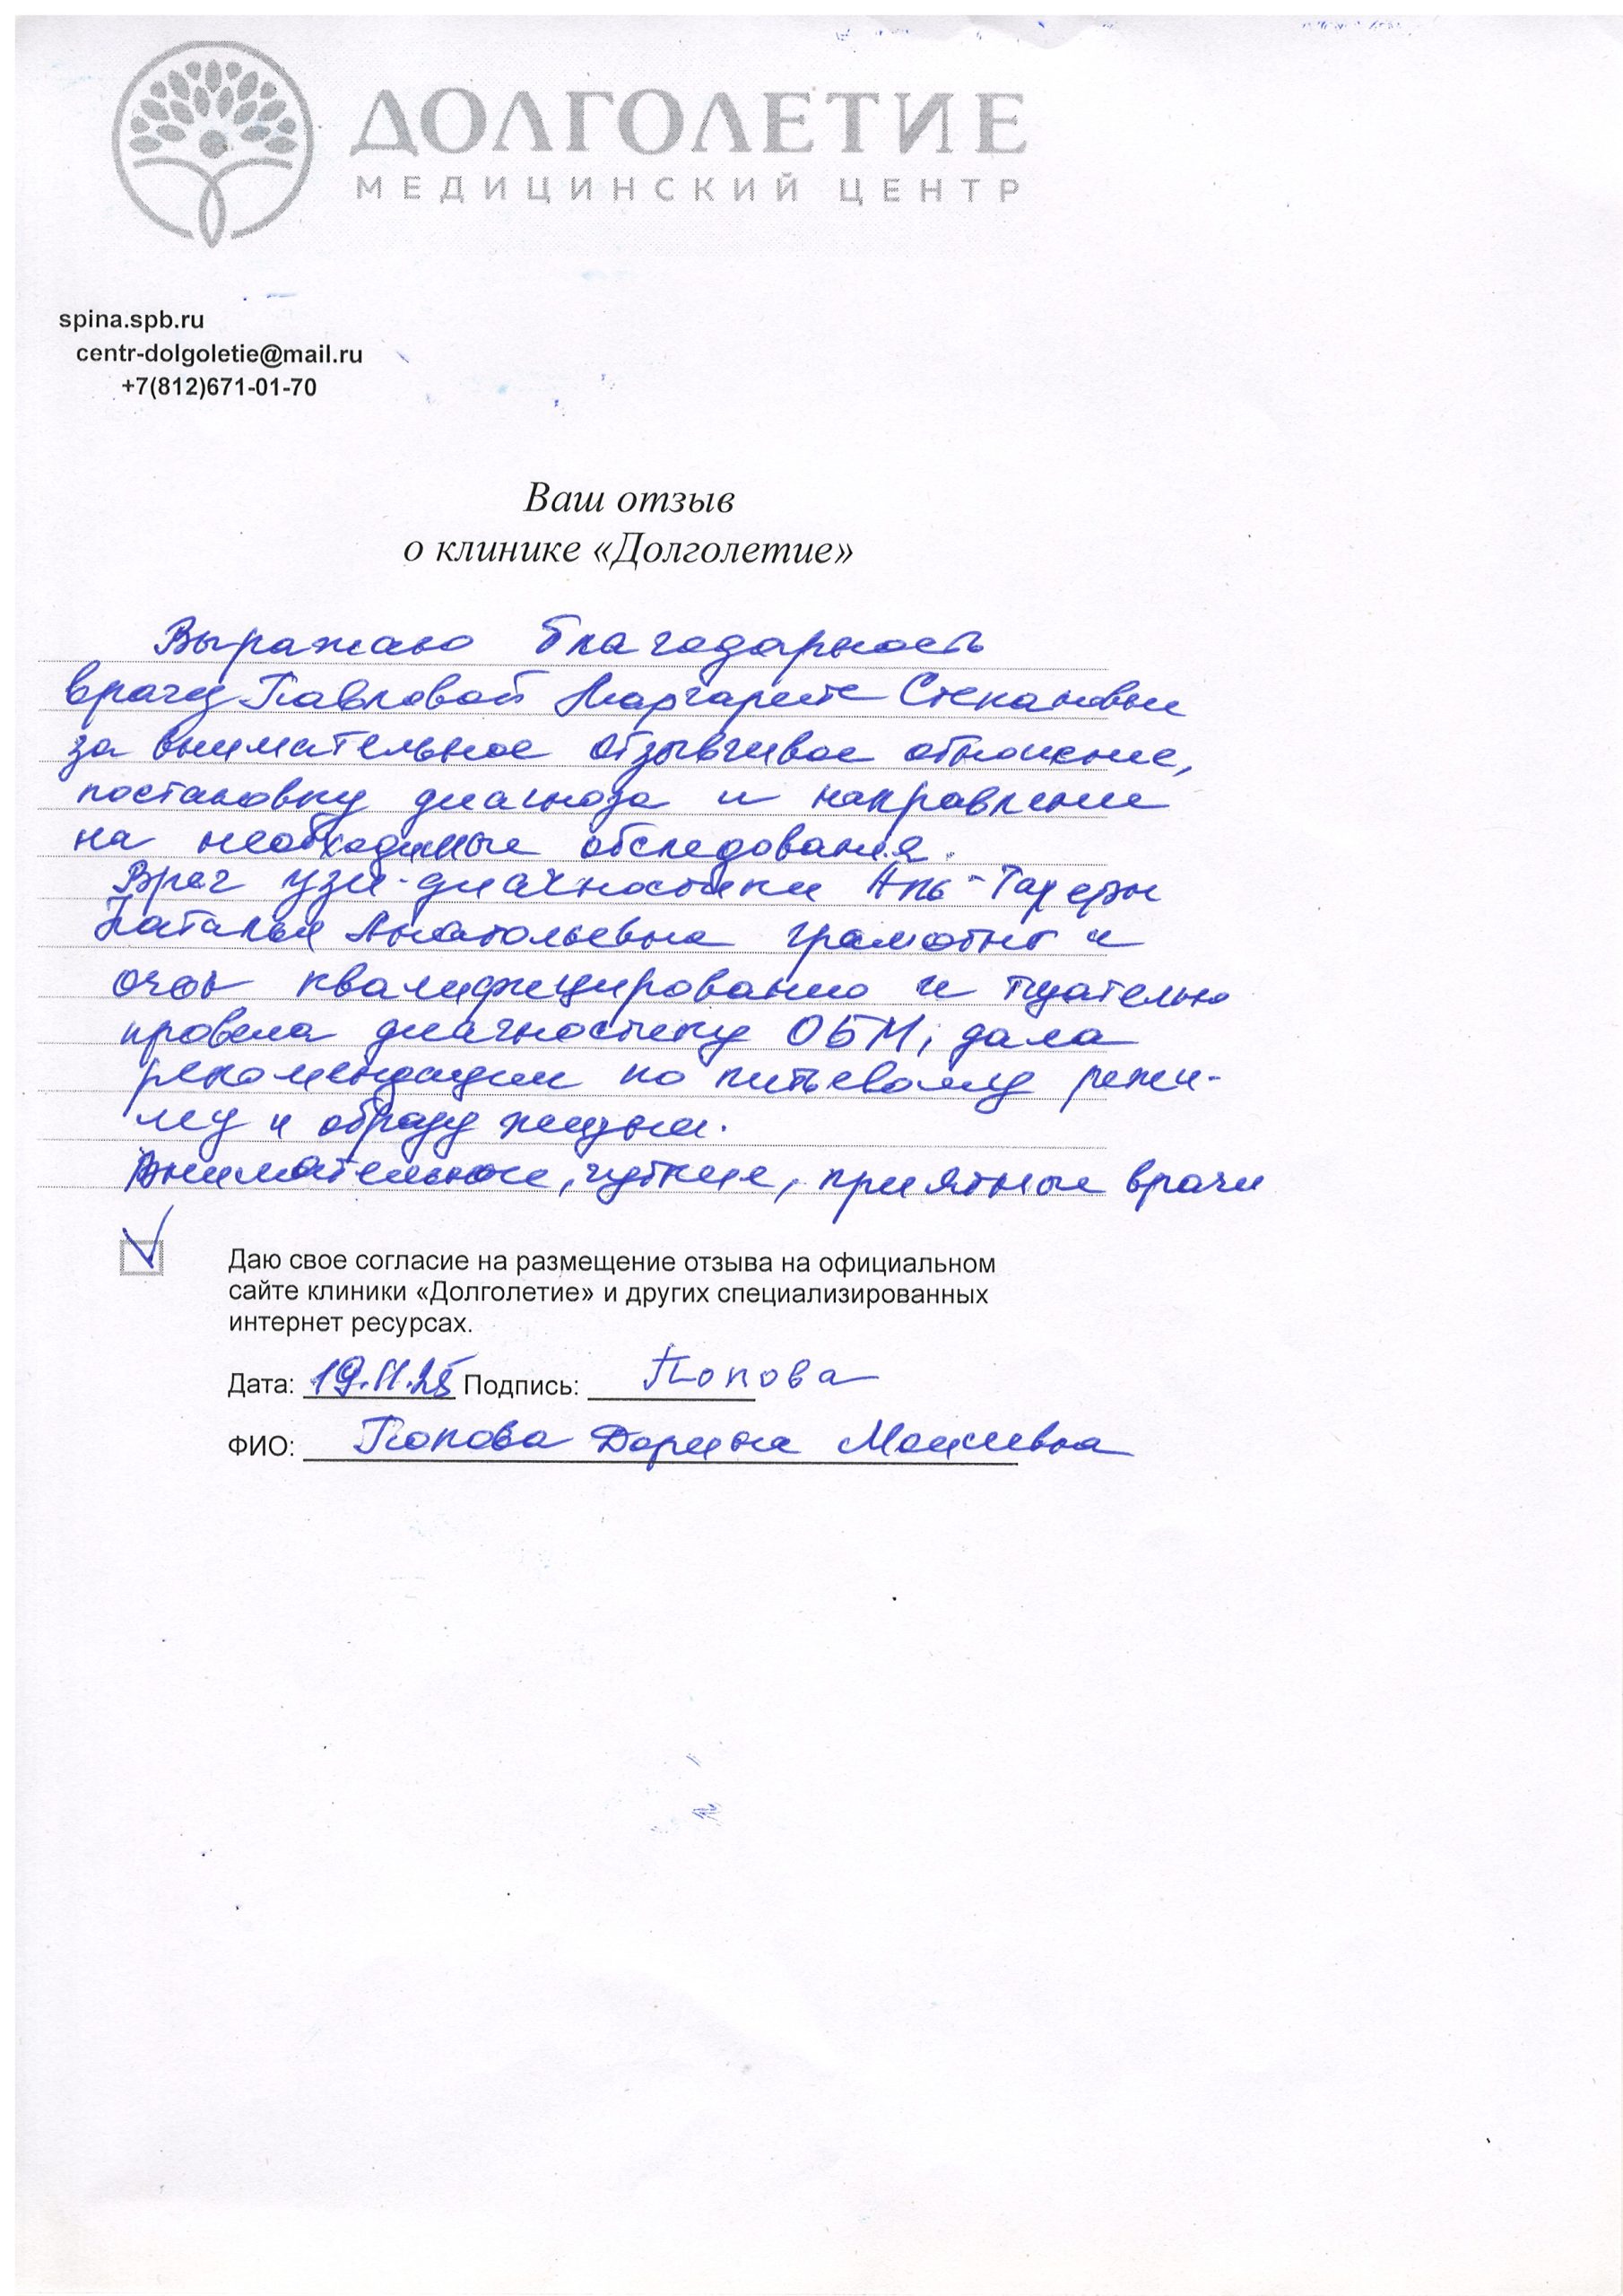 ДОЛГОЛЕТИЕ
МЕДИЦИНСКИЙ ЦЕНТР
spina.spb.ru
centr-dolgoletie@mail.ru
+7(812)671-01-70
Ваш отзыв
о клинике «Долголетие»
Выражаю благодарность
врачу Павловой Маргарите Степановне
за внимательное отзывчивое отношение,
постановку диагноза и направление
на необходимые обследования.
Врач узи-диагностики Аль-
Наталья Анатольевна грамотно и
очень квалифицированно и тщательно
провела диагностику ОБМ, дала
рекомендации по питьевому режи-
му и образу жизни.
Внимательные, чуткие, приятные врачи
Даю свое согласие на размещение отзыва на официальном
сайте клиники «Долголетие» и других специализированных
интернет ресурсах.
Дата: 19.11.25 Подпись: Попова
ФИО: Попова Дорина Моисеевна